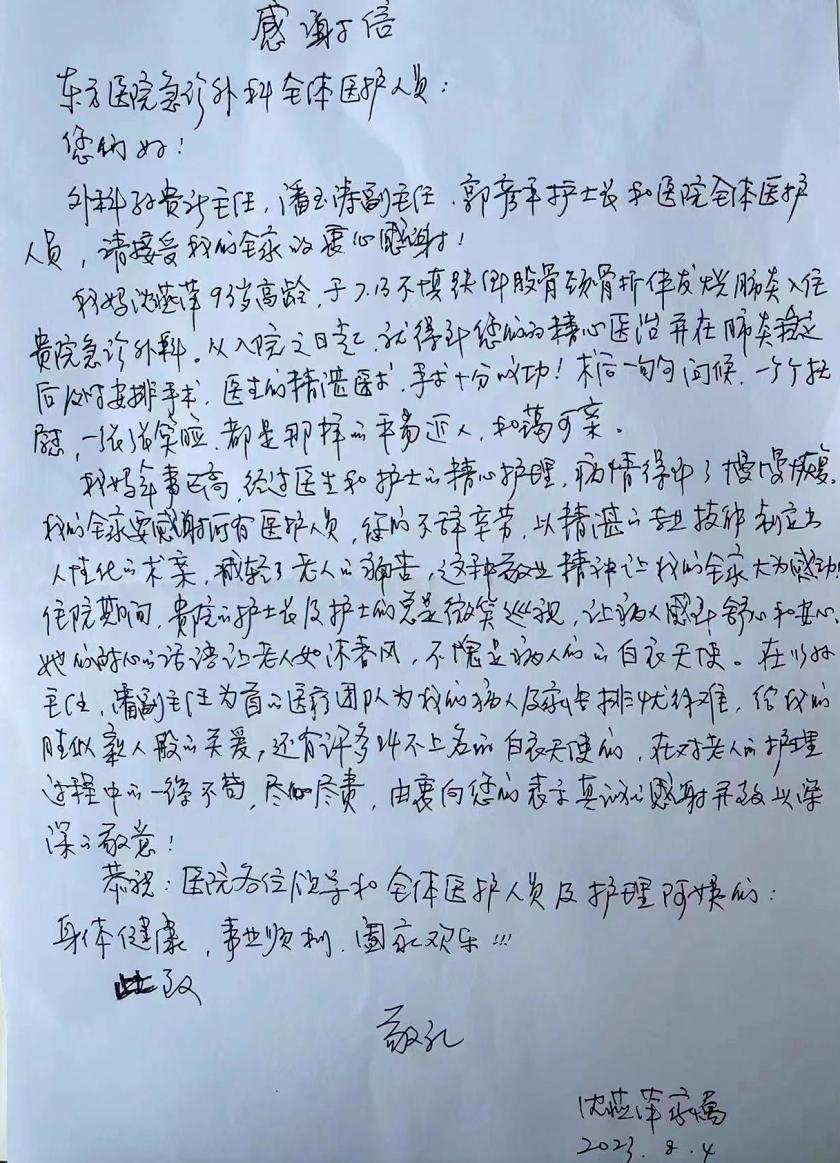 感谢信
东方医院急诊外科全体医护人员：
您们好！
外科孙贵新主任，潘玉涛副主任、郭彦平护士长和医院全体医护
人员，请接受我们全家的衷心感谢！
我妈沈燕萍93岁高龄，于7.13不慎跌倒股骨颈骨折伴发烧肺炎入住
贵院急诊外科。从入院之日起，就得到您们的精心医治并在肺炎稳定
后及时安排手术，医生的精湛医术，手术十分成功！术后一句句问候，一个个抚
慰，一张张笑脸，都是那样的平易近人，和蔼可亲。
我妈年事已高，经过医生和护士的精心护理，病情得到了慢慢恢复。
我们全家要感谢所有医护人员，你们不辞辛劳，以精湛的专业技能制定出
人性化的术案，减轻了老人的痛苦，这种敬业精神让我们全家大为感动！
住院期间，贵院的护士长及护士们总是微笑巡视，让病人感到舒心和安心。
她们的耐心的话语让老人如沐春风，不愧是病人们的白衣天使。在以孙
主任，潘副主任为首的医疗团队为我们病人及家属排忧除难，给我们
胜似亲人般的关爱，还有许多叫不上名的白衣天使们，在对老人的护理
过程中的一丝不苟，尽心尽责，由衷向您们表示真诚的感谢并致以深
深的敬意！
恭祝：医院各位领导和全体医护人员及护理阿姨们：
身体健康，事业顺利、阖家欢乐!!!
此致
敬礼
沈燕萍家属
2023.8.4